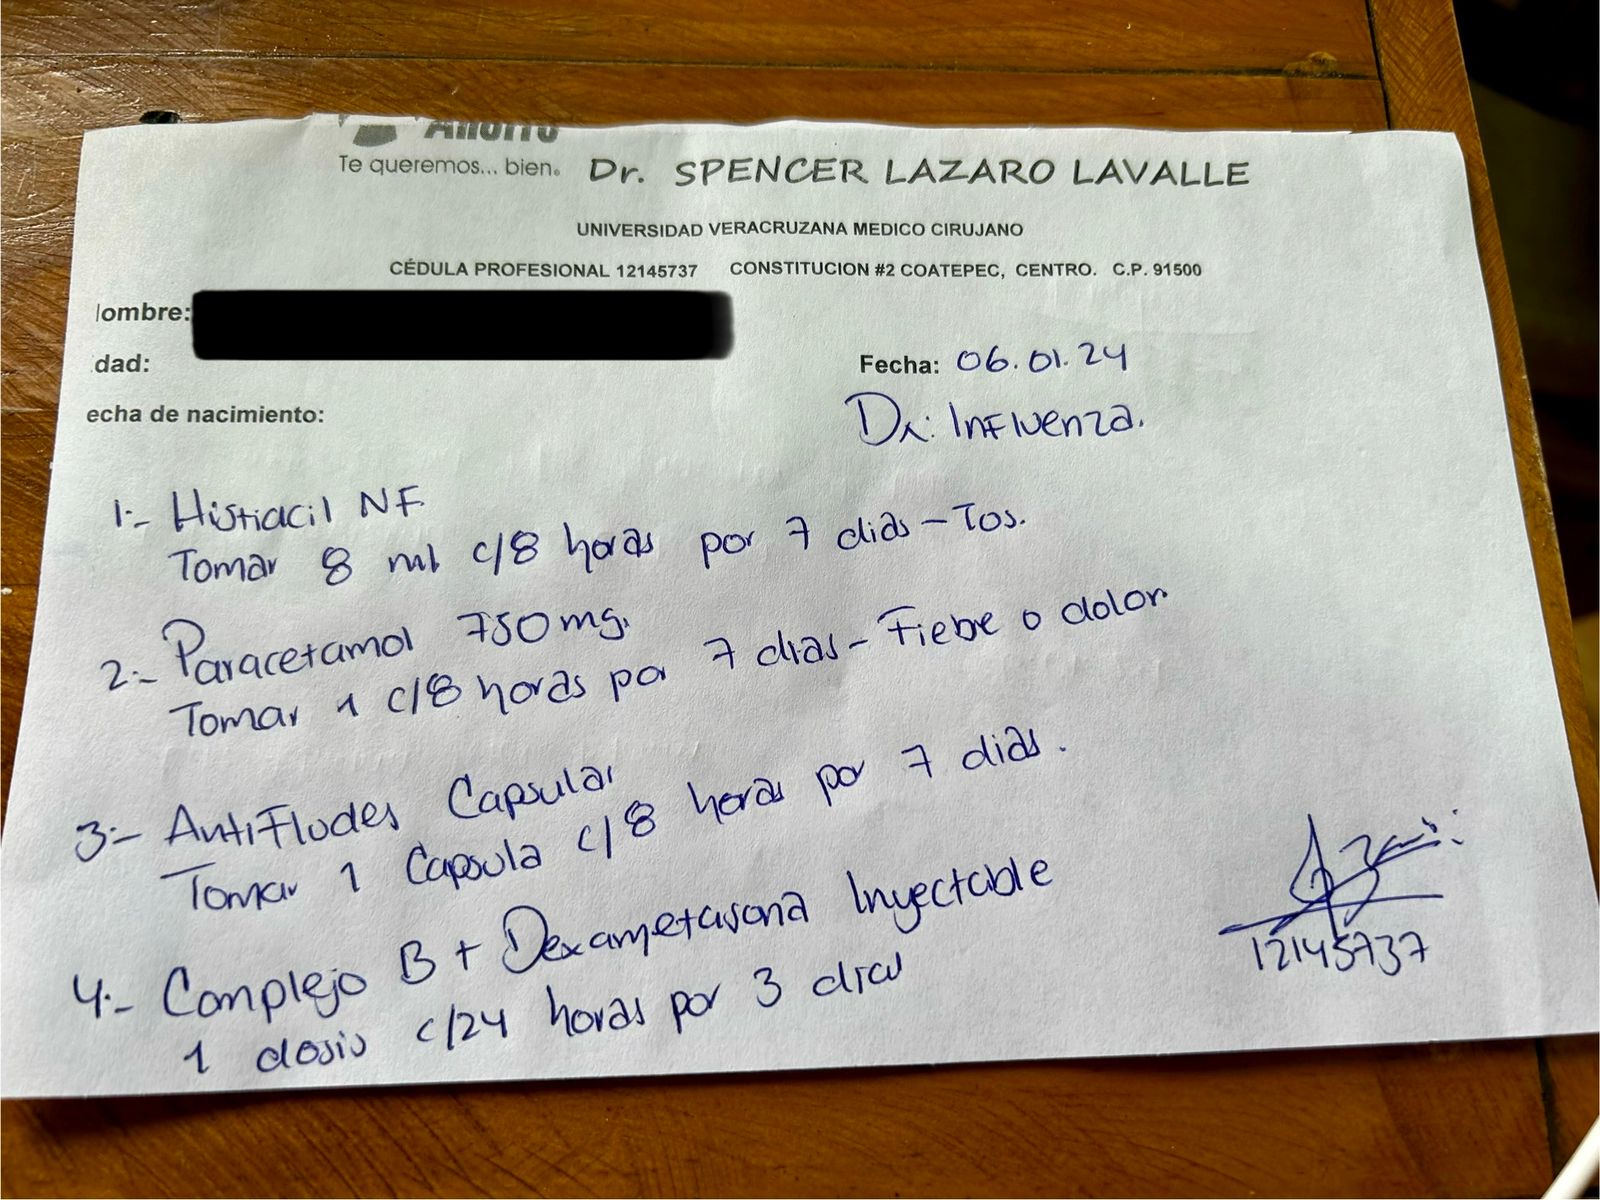 Ahorro
Te queremos... bien.
Dr. SPENCER LAZARO LAVALLE
UNIVERSIDAD VERACRUZANA MEDICO CIRUJANO
CÉDULA PROFESIONAL 12145737 CONSTITUCION #2 COATEPEC, CENTRO. C.P. 91500
ombre:
dad:
Fecha: 06.01.24
echa de nacimiento:
Dx: Influenza.
1.- Histiacil NF.
Tomar 8 ml c/8 horas por 7 dias - Tos.
2.- Paracetamol 750 mg.
Tomar 1 c/8 horas por 7 dias - Fiebre o dolor
3.- AntiFludes Capsular
Tomar 1 Capsula c/8 horas por 7 dias.
4.- Complejo B + Dexametasona Inyectable
1 dosis c/24 horas por 3 dias
12145737